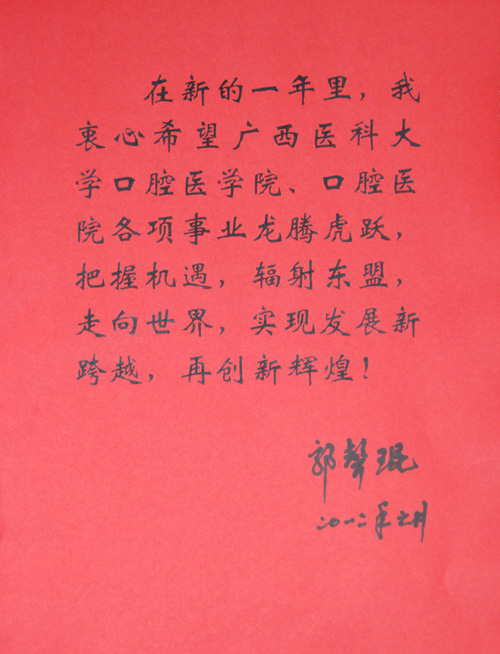 在新的一年里，我
衷心希望广西医科大
学口腔医学院、口腔医
院各项事业龙腾虎跃，
把握机遇，辐射东盟，
走向世界，实现发展新
跨越，再创新辉煌！
郭声琨
二〇一二年元月